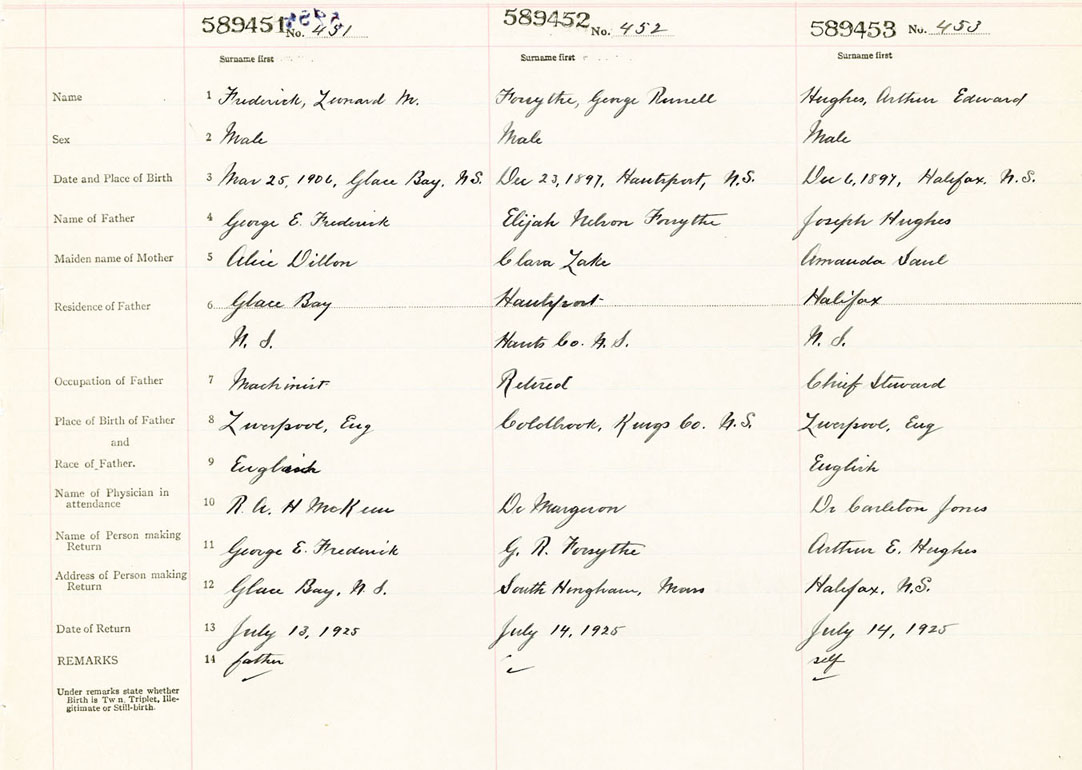 589451 No. 451 589452 No. 452 589453 No. 453
Surname first Surname first Surname first
Name 1 Frederick, Leonard M. Forsythe, George Russell Hughes, Arthur Edward
Sex 2 Male Male Male
Date and Place of Birth 3 Mar 25, 1906, Glace Bay, N.S. Dec 23, 1897, Hantsport, N.S. Dec 6, 1897, Halifax, N.S.
Name of Father 4 George E. Frederick Elijah Nelson Forsythe Joseph Hughes
Maiden name of Mother 5 Alice Dillon Clara Lake Amanda Saul
Residence of Father 6 Glace Bay Hantsport Halifax
N. S. Hants Co. N. S. N. S.
Occupation of Father 7 Machinist Retired Chief Steward
Place of Birth of Father 8 Liverpool, Eng Coldbrook, Kings Co. N.S. Liverpool, Eng
and
Race of Father. 9 English English
Name of Physician in
attendance 10 R. A. H McKeen Dr Margeson Dr Carleton Jones
Name of Person making
Return 11 George E. Frederick G. R. Forsythe Arthur E. Hughes
Address of Person making
Return 12 Glace Bay, N. S. South Hingham, Mass Halifax, N.S.
Date of Return 13 July 13, 1925 July 14, 1925 July 14, 1925
REMARKS 14 father self
Under remarks state whether
Birth is Twin, Triplet, Ille-
gitimate or Still-birth.